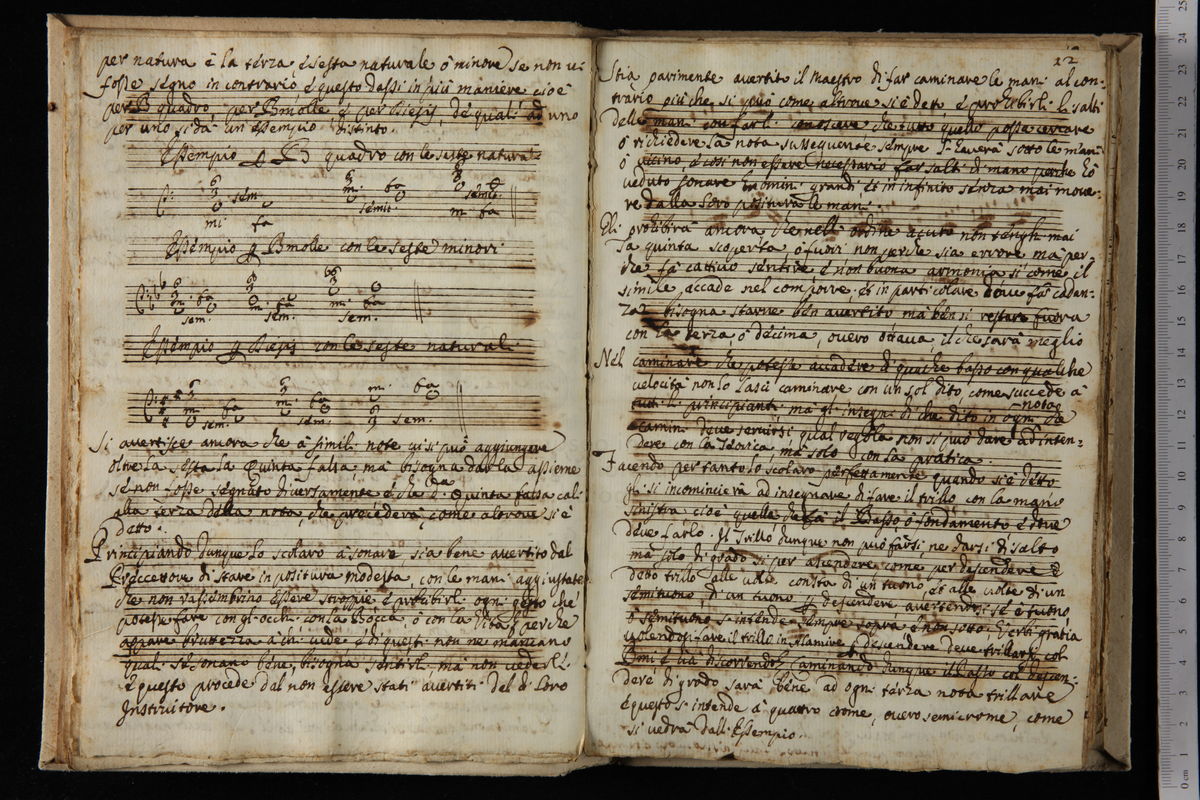 per natura è la terza e sesta naturale ò minore se non vi
fosse segno in contrario è questo dassi in più maniere cioè
per B quadro, per Bmolle, è per Diesis, de quali ad uno
per uno si dà un essempio distinto.
Essempio p B quadro con le seste naturali
6 6 6
mi fa sem. mi fa semit. mi fa semit.
Essempio p Bmolle con le seste minori
6 6 b6
mi fa sem. mi fa sem. mi fa sem.
Essempio p Diesis con le seste naturali
6 6 mi fa
mi fa sem. mi fa sem. 6 sem.
Si avertisce ancora che à simili note vi si può aggiungere
oltre la sesta la Quinta falsa ma bisogna darla assieme
se non fosse segnato diversamente è che d.a Quinta falsa cali
alla terza della nota, che precederà come altrove si è
detto.
Principiando dunque lo scolaro à sonare sia bene avertito dal
Precettore di stare in positura modesta, con le mani aggiustate
che non rassembrino essere stroppie è prohibirli ogni gesto che
potesse fare con gl'occhi con la Bocca, ò con la vita perche
appare bruttezza à chi vede è questi non ne mancano
quali se sonano bene, bisogna sentirli ma non vederli
è questo procede dal non essere stati avertiti del d.o loro
Instruitore.
12
Stia parimente avertito il Maestro di far caminare le mani al con-
trario più che si può come altrove si è detto è prohibirli li salti
delle mani con farli conoscere che tutto quello possa cercare
ò richiedere la nota sussequente sempre l'haverà sotto le mani
ò vicino è così non essere necessario far salti di mano perche hò
veduto sonare huomini grandi et in infinito senza mai move-
re dalla loro positura le mani.
Gli prohibirà ancora che nell'ordine acuto non tenghi mai
la quinta scoperta ò fuori non perche sia errore ma per-
che fà cattivo sentire è non buona armonia si come il
simile accade nel comporre, et in particolare dove fai caden-
za bisogna starne ben avertito ma bensi restare fuora
con la terza ò decima, overo ottava, il che sarà meglio
Nel caminare che potesse accadere di qualche basso con qualche
velocità non lo lasci caminare con un sol dito, come succede à
tutti li principianti ma gl'insegni di che dito in ogni nota
camini deve servirsi qual regola non si può dare ad inten-
dere con la Teorica ma solo con la pratica.
Facendo per tanto lo scolaro perfettamente quando si è detto
gli si incomincierà ad insegnare di fare il trillo con la mano
sinistra cioè quella che fà il Basso ò fondamento è dove
deve farlo. Il Trillo dunque non può farsi ne darsi di salto
mà solo di grado si per ascendere come per descendere è
detto trillo alle volte consta di un tuono, et alle volte di un
semituono, di un tuono p descendere avertendosi se è tuono,
ò semituono s'intende sempre sopra è non sotto. Verbi gratia
volendosi fare il trillo in Alamire p descendere deve trillare col
Bmi è via discorrendo. Caminando dunque il Basso col descen-
dere di grado sarà bene ad ogni terza nota trillare
è questo s'intende à quattro crome, overo semicrome, come
si vedrà dall'Essempio.